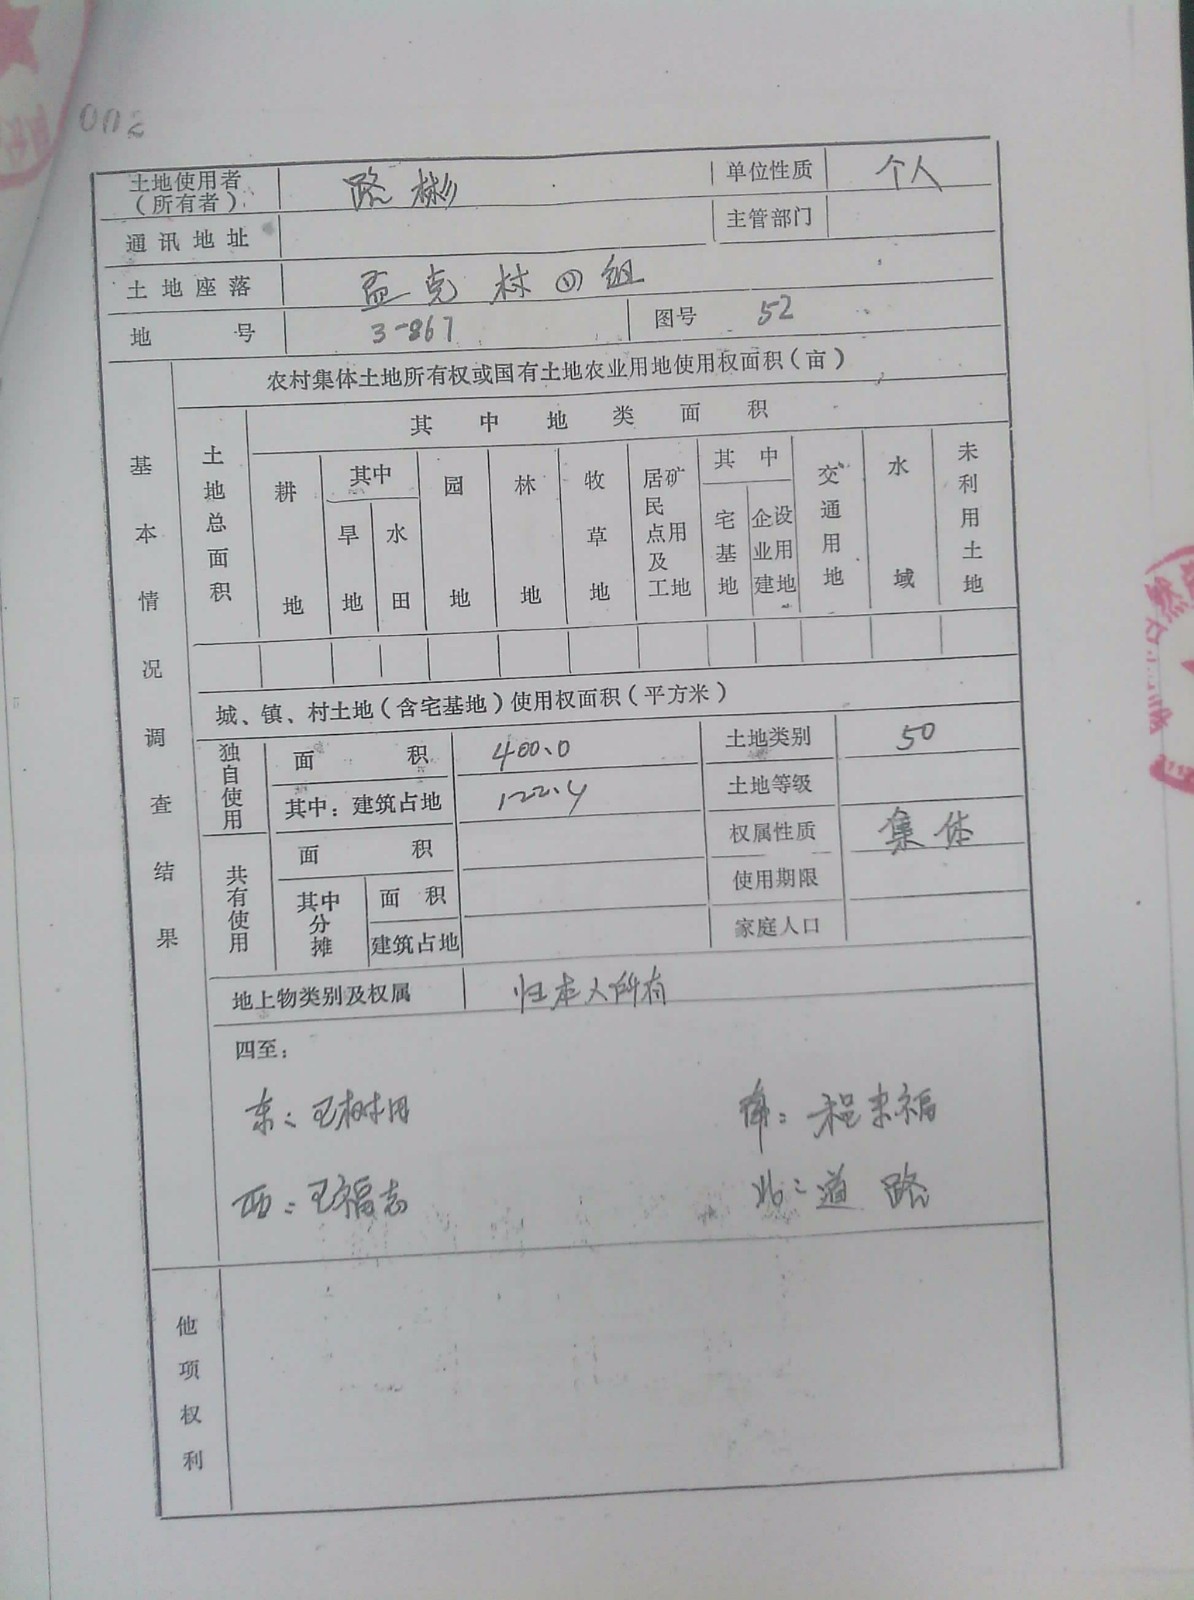 002
土地使用者（所有者） 路彬 单位性质 个人
通讯地址 主管部门
土地座落 孟克村四组
地号 3-867 图号 52
基本情况调查结果
农村集体土地所有权或国有土地农业用地使用权面积（亩）
土地总面积 其中地类面积
耕地 其中 旱地 水田 园地 林地 牧草地 居民点及工矿用地 其中 宅基地 企业建设用地 交通用地 水域 未利用土地
城、镇、村土地（含宅基地）使用权面积（平方米）
独自使用 面积 400.0 土地类别 50
其中：建筑占地 122.4 土地等级
共有使用 面积 权属性质 集体
其中分摊 面积 使用期限
建筑占地 家庭人口
地上物类别及权属 归本人所有
四至：
东：王树用 南：程来福
西：王福志 北：道路
他项权利